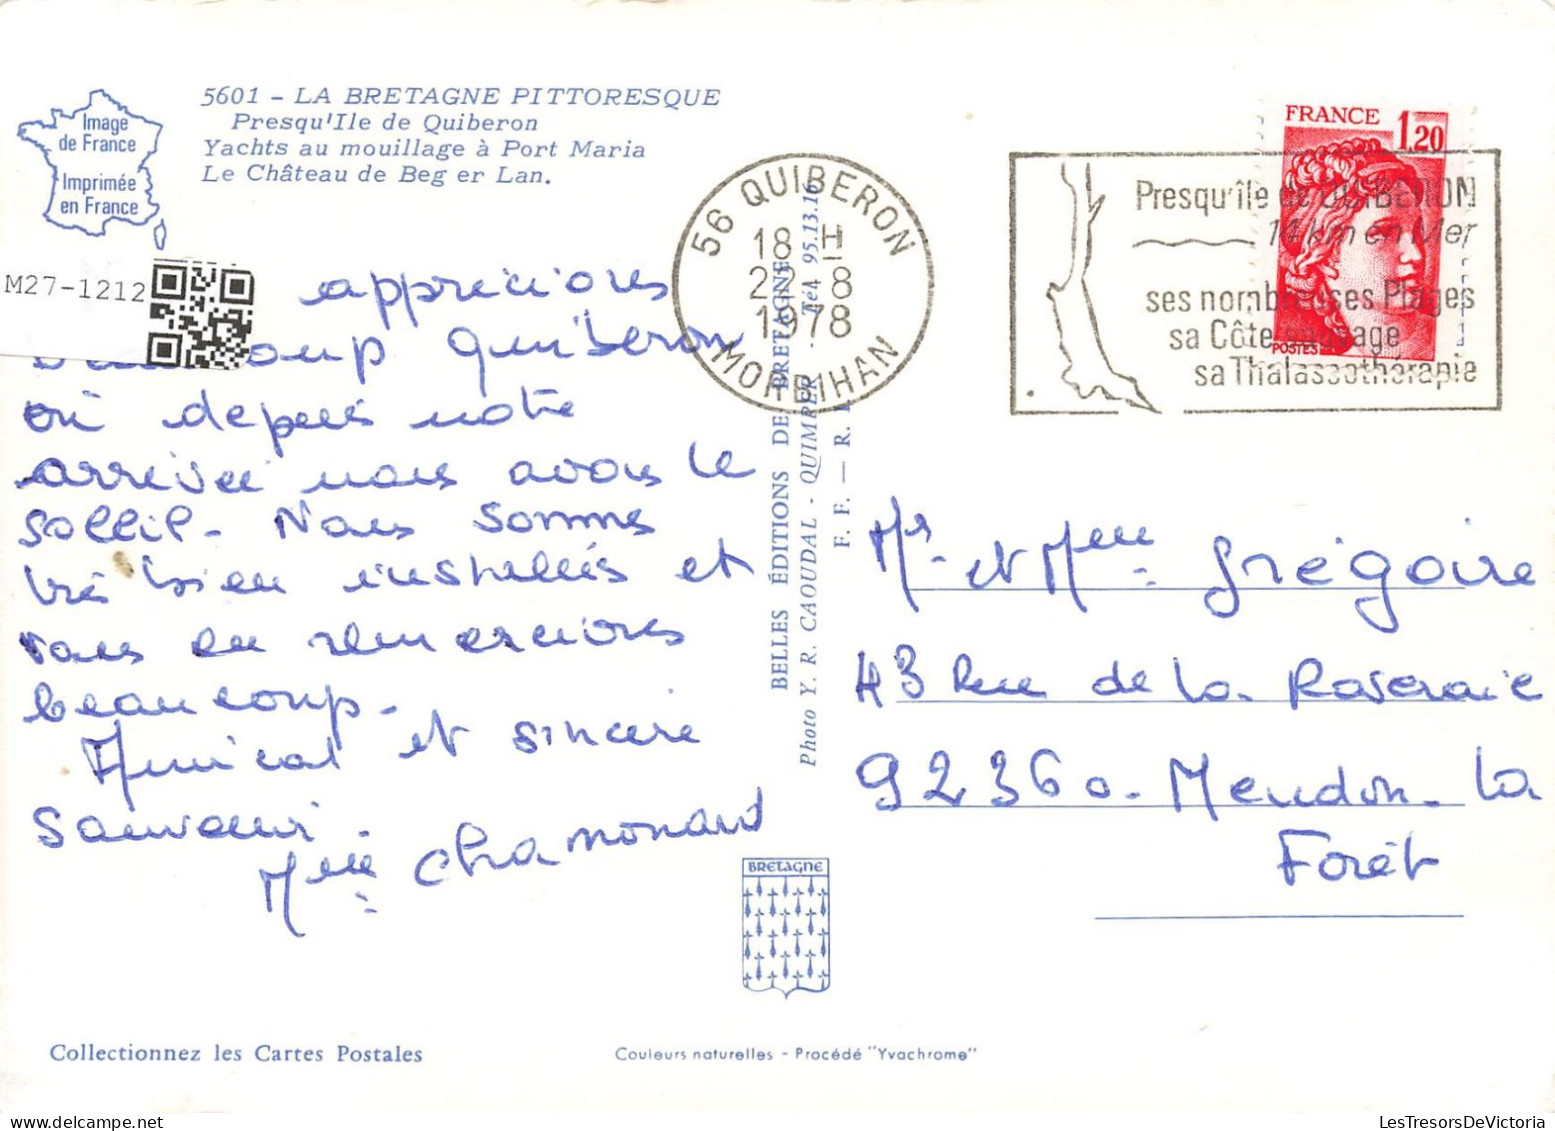 5601 - LA BRETAGNE PITTORESQUE
Presqu'Ile de Quiberon
Yachts au mouillage à Port Maria
Le Château de Beg er Lan.
Image
de France
Imprimée
en France
M27-1212
apprécions
oup quiberon
où depuis notre
arrivée nous avons le
solleil. Nous sommes
très bien installés et
vous en remercions
beaucoup.
Amical et sincère
souvenir.
Mme Chamonard
56 QUIBERON
18 H
22-8
1978
MORBIHAN
FRANCE
1,20
POSTES
Presqu'île de QUIBERON
14 km en Mer
ses nombreuses Plages
sa Côte sauvage
sa Thalassothérapie
BELLES ÉDITIONS DE BRETAGNE
Photo Y. R. CAOUDAL - QUIMPER - Tél. 95.13.16
F. F. — R.
Mr. et Mme. Grégoire
43 Rue de la Roseraie
92360. Meudon. la
Forêt
BRETAGNE
Collectionnez les Cartes Postales
Couleurs naturelles - Procédé "Yvachrome"
LesTresorsDeVictoria